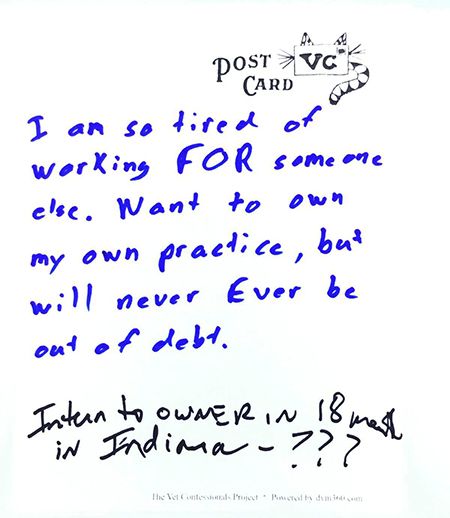 POST CARD VC
I am so tired of
working FOR someone
else. Want to own
my own practice, but
will never Ever be
out of debt.
Intern to OWNER IN 18 month
in Indiana - ???
The Vet Confessionals Project * Powered by dvm360.com